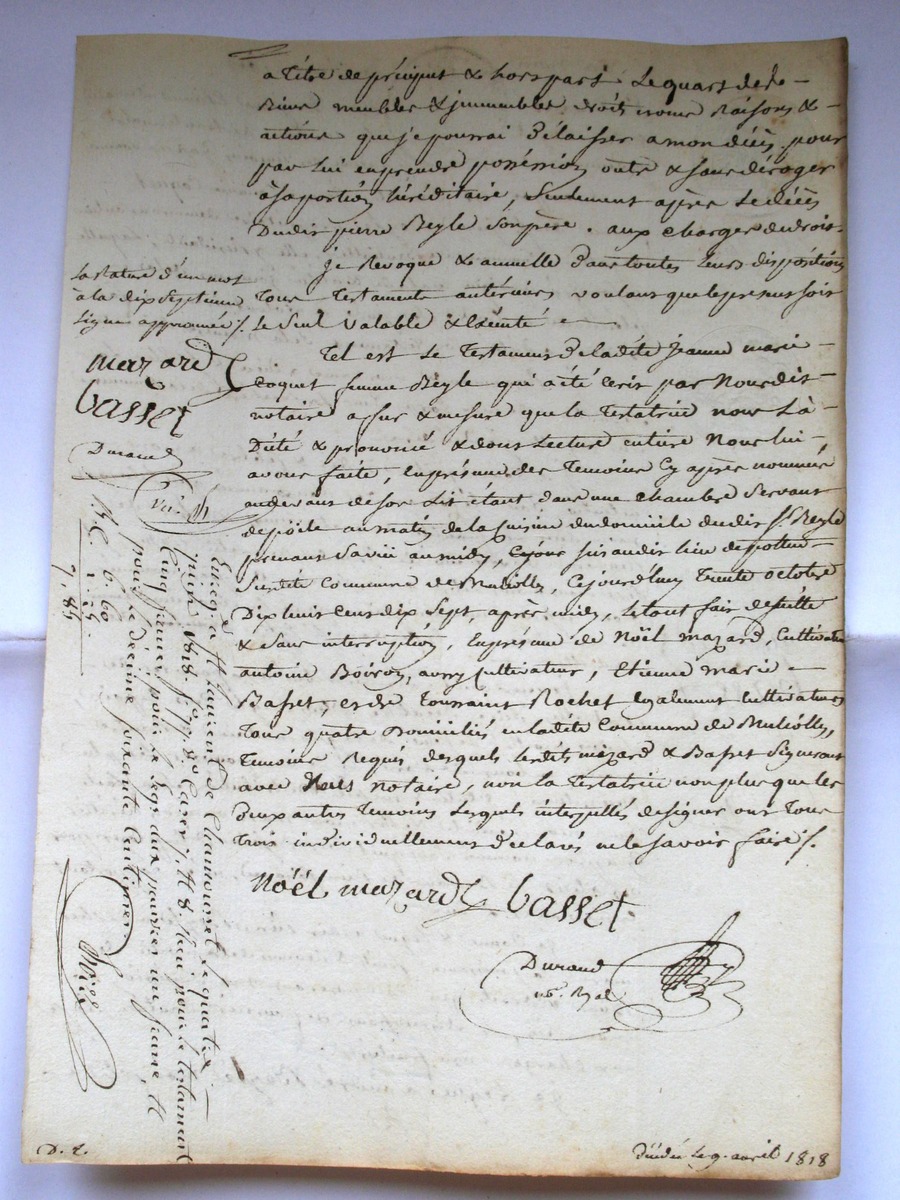 a titre de préciput & hors part le quart de se
Biens meubles & immeubles droits noms Raisons &
actions que je pourrai Délaisser a mon décès pour
par Lui en prendre possession outre & sans déroger
à sa portion héréditaire, seulement après le décès
Dudit pierre Reyle son père. aux charges de droit
je Revoque & annulle dans toutes leurs dispositions
tous testaments antérieurs voulant que le présent soit
le seul valable & Exécuté
Tel est le Testament de ladite Jeanne marie
Coquet femme Reyle qui a été écrit par Nous dit
notaire a fur & mesure que la Testatrice nous l'a
Dicté & prononcé & dont Lecture entière Nous lui
avons faite, En présence des Temoins Cy après nommés
au devant de son Lit étant dans une chambre servant
de poële au matin de la Cuisine du domicile dudit Sr. Reyle
prenant Savie au midy, Ce jour
Susdite Commune de Cejourd'huy Trente octobre
Dix huit Cent dix Sept, après midy, le tout fait de suitte
& Sans interruption, En présence de Noël mazard, Cultivateur
antoine Boiron, aussy cultivateur, Etienne marie
Basset, et de Toussaint Rochet Egalement cultivateurs
Tous quatre Domiciliés en ladite Commune de
Temoins Requis desquels lesdits mazard & Basset Signeront
avec Nous notaire, non la Testatrice non plus que les
Deux autres Temoins Lesquels interpellés de signer ont Tous
Trois individuellement Déclarés ne le savoir faire ./.
Noël mazard basset
Durand
no. Royal
La Rature d'un mot
à la dix Septième
Ligne approuvée ./.
mazard
basset
Durand
Enregité à St Laurent de Chamousset le quatre
1818 fo. 77 Ro Cases 7, & 8. Reçu pour le testament
Cinq francs, pour le legs aux pauvres un franc, et
pour le décime soixante Centimes
6. 60
1. 25
7. 85
D. 2.
Le 9. avril 1818